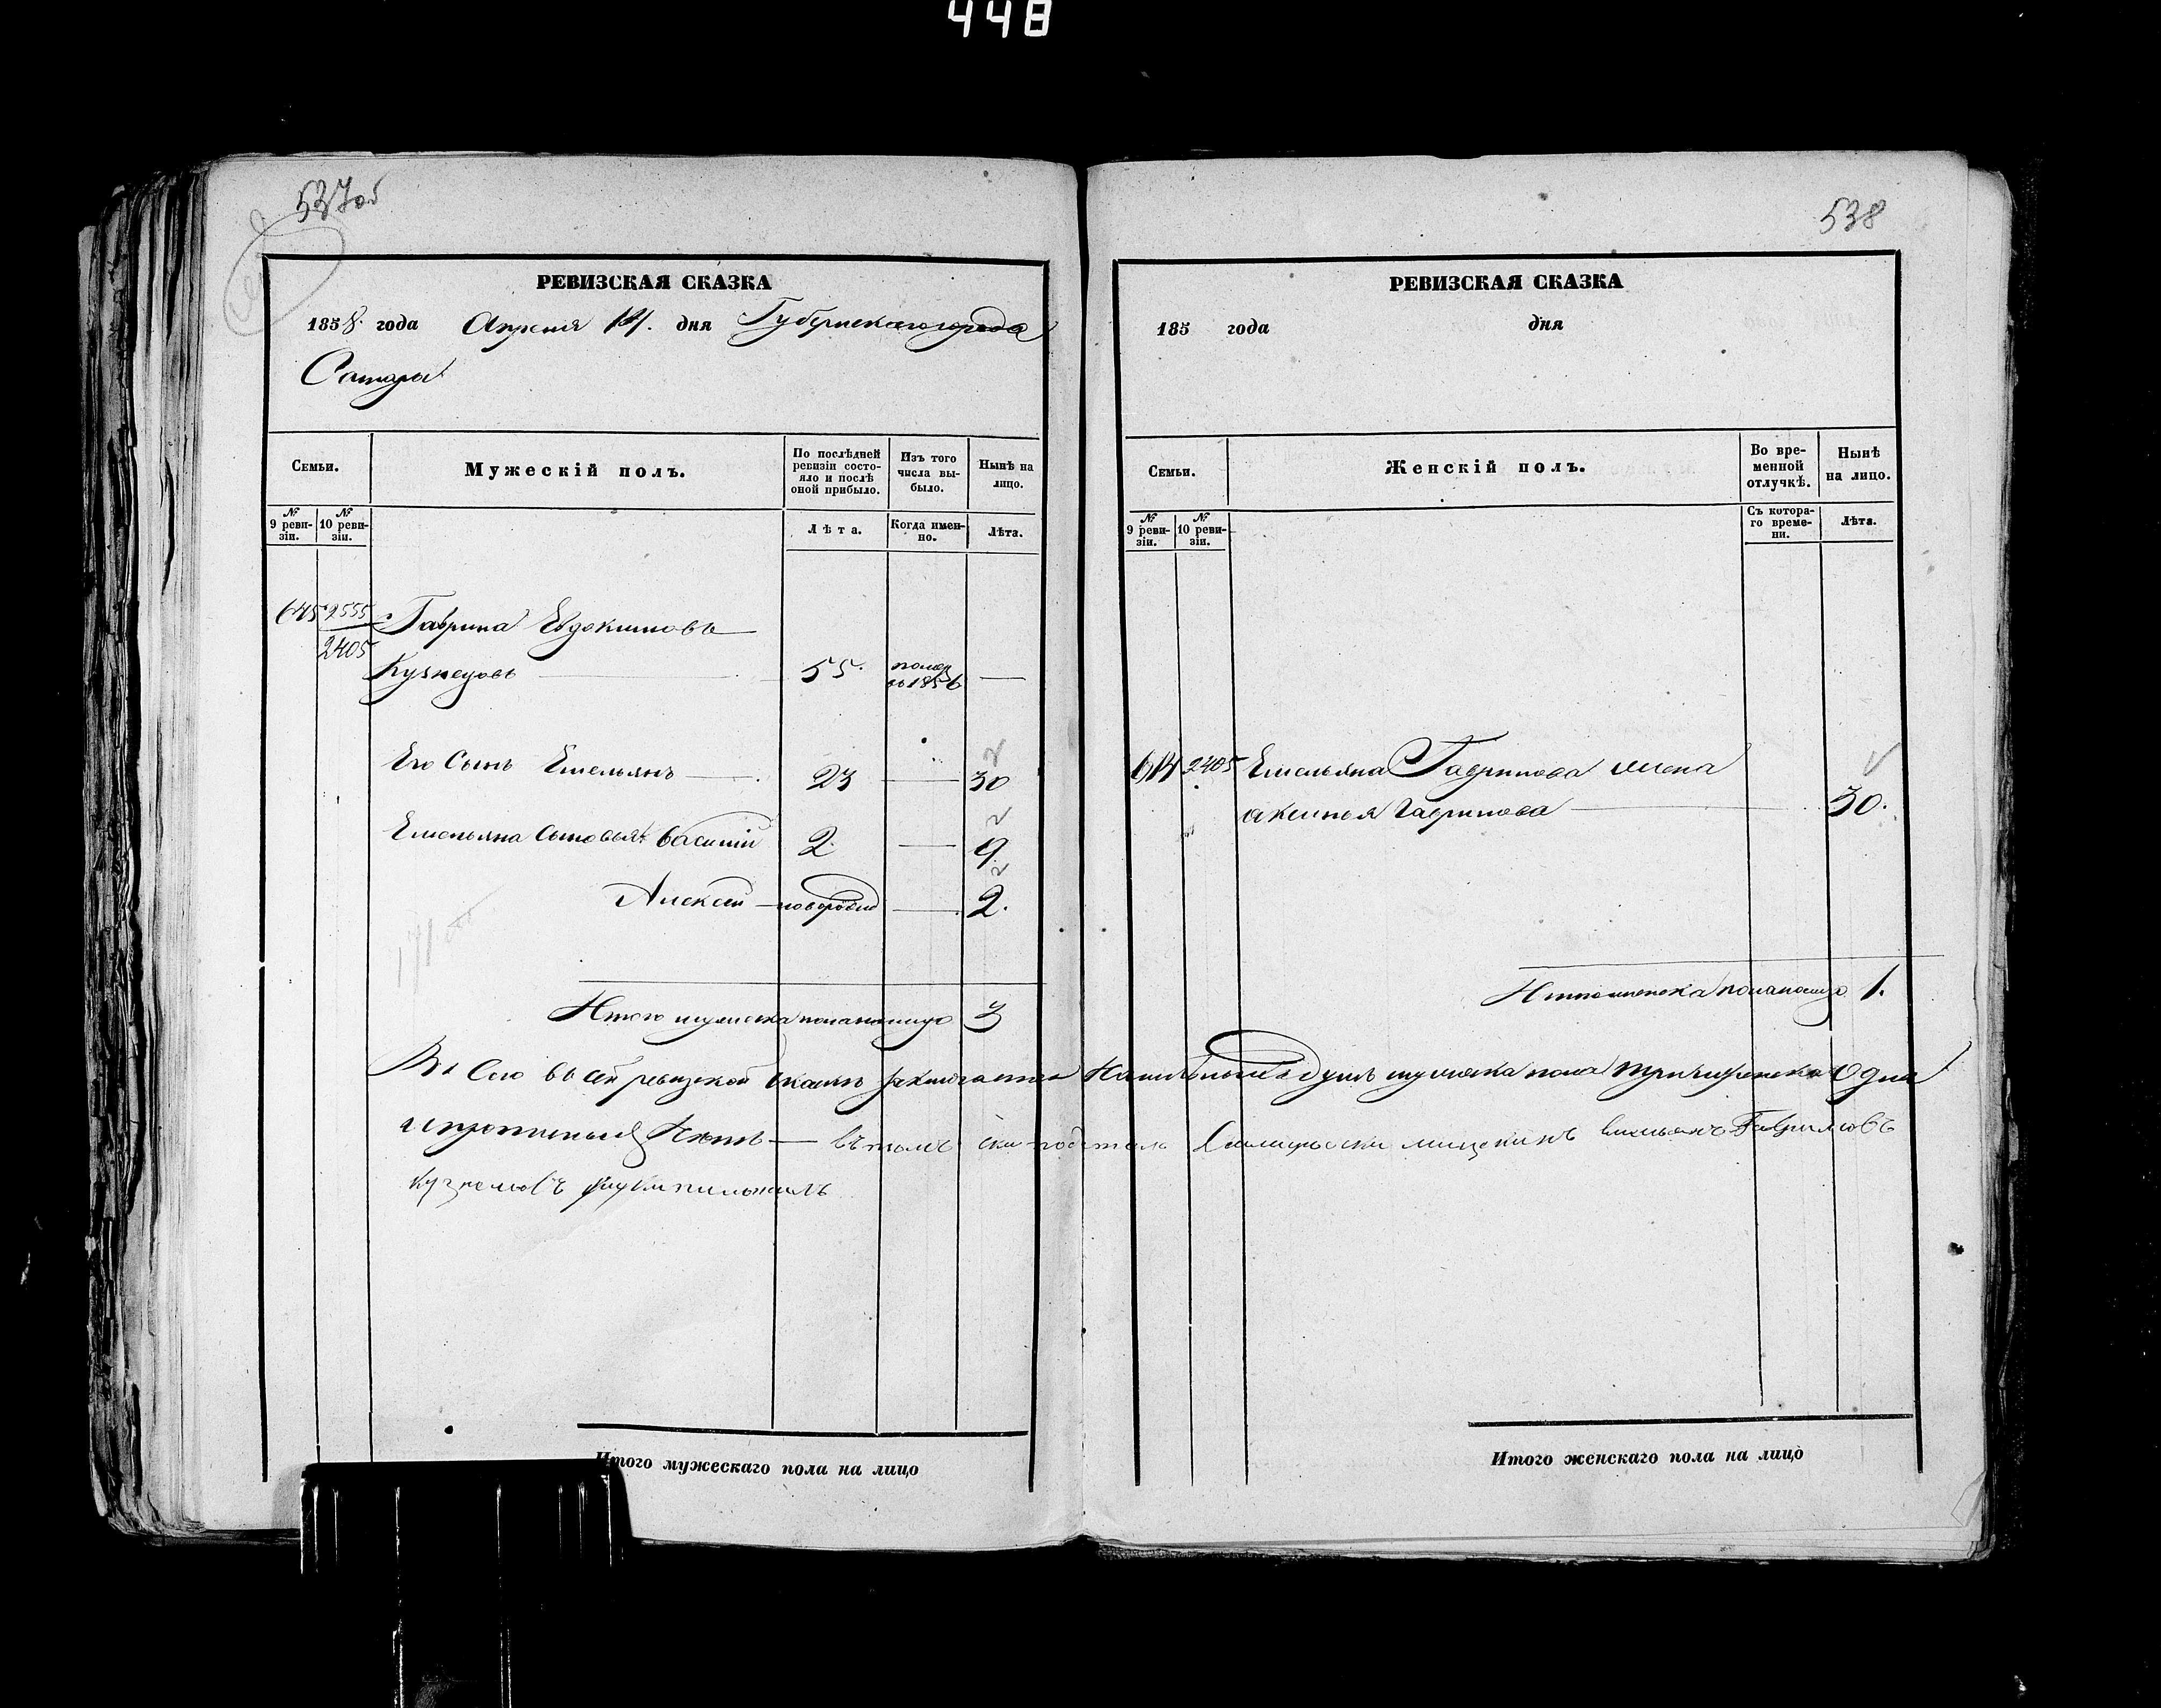 448
527об
РЕВИЗСКАЯ СКАЗКА
1858. года Апреля дня Губернскаго города
Самары
Семьи.
Мужескій полъ.
По послѣдней ревизіи состояло и послѣ оной прибыло.
Изъ того числа выбыло.
Нынѣ на лицо.
№ 9 ревизіи.
№ 10 ревизіи.
Лѣта.
Когда именно.
Лѣта.
645 2555 Гаврила Евдокимовъ
2405
Кузнецовъ 55. въ 1856 —
Его Сынъ Емельянъ 23 — 30
Емельяна сыновья: Василій 2. — 9.
Алексей — новорожд — 2.
Итого мужеска пола на лицо 3
538
РЕВИЗСКАЯ СКАЗКА
185 года дня
Семьи.
Женскій полъ.
Во временной отлучкѣ.
Нынѣ на лицо.
№ 9 ревизіи.
№ 10 ревизіи.
Съ котораго времени.
Лѣта.
2405 Емельяна Гаврилова жена
Аксинья Гаврилова 30.
Итого женска пола на лицо 1.
въ сей ревизской сказке заключается Наличныхъ душъ мужеска пола три женска Одна
въ томъ Самарской мещанинъ Емельянъ Гавриловъ
Кузнецовъ руку приложилъ
Итого мужескаго пола на лицо
Итого женскаго пола на лицо